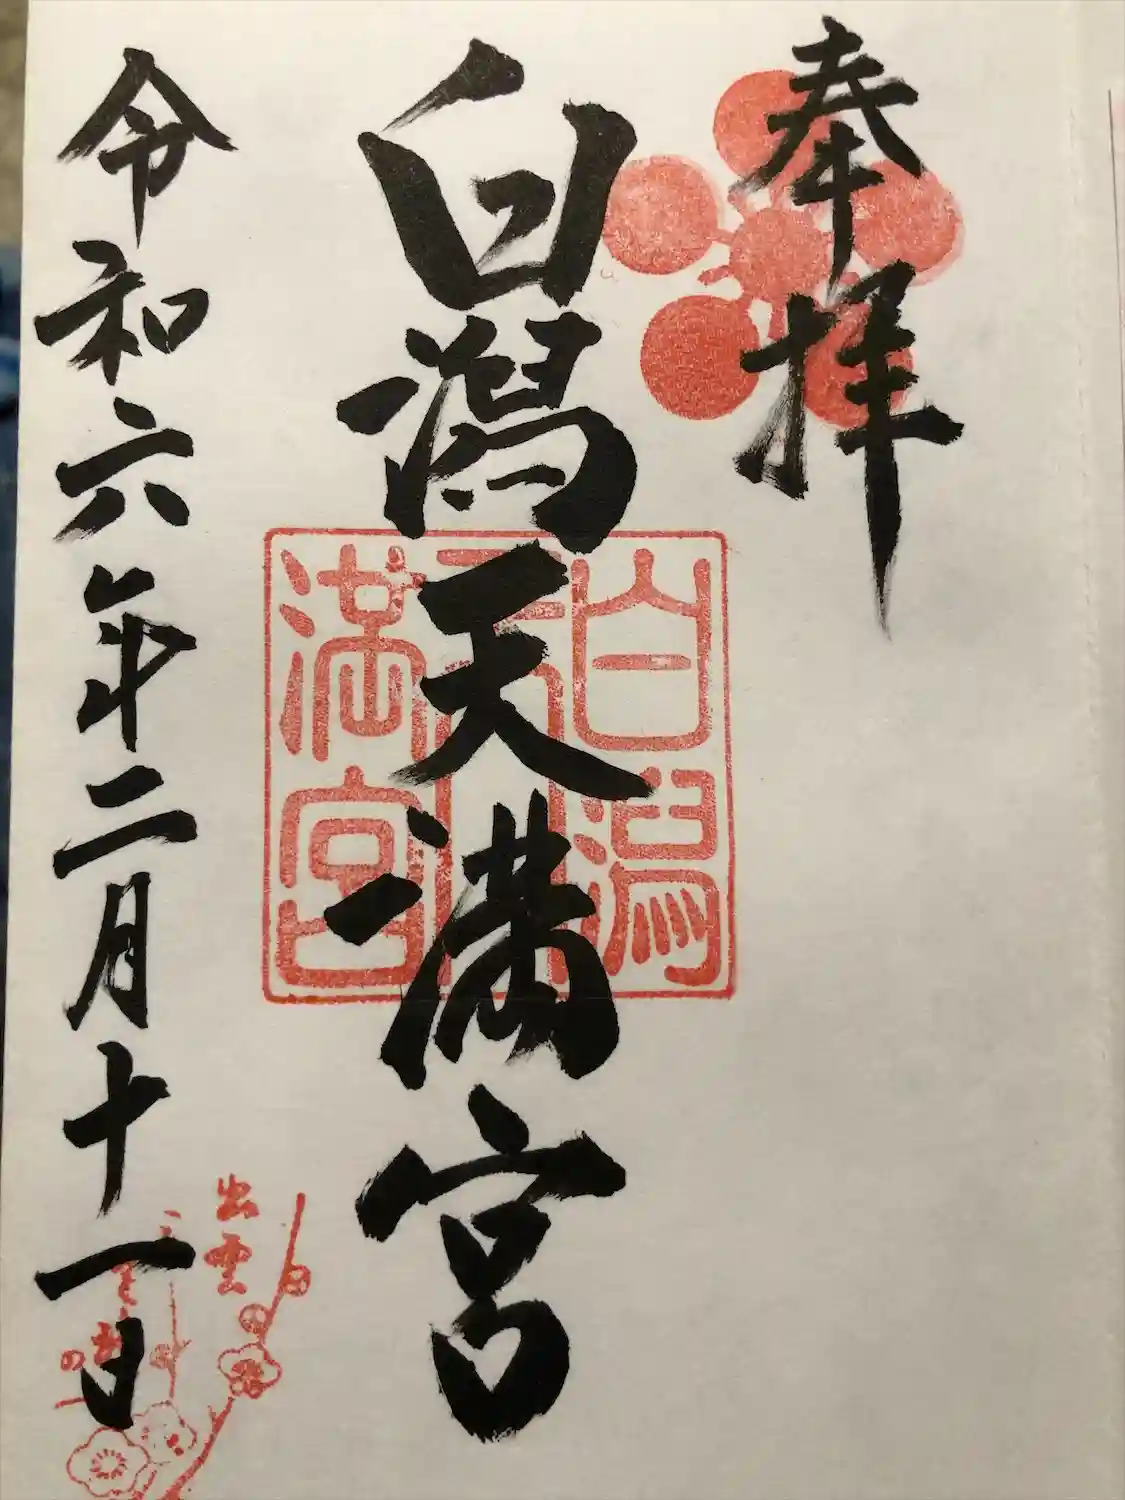 奉拝
白潟天満宮
令和六年二月十一日
白潟
天
満宮
出雲